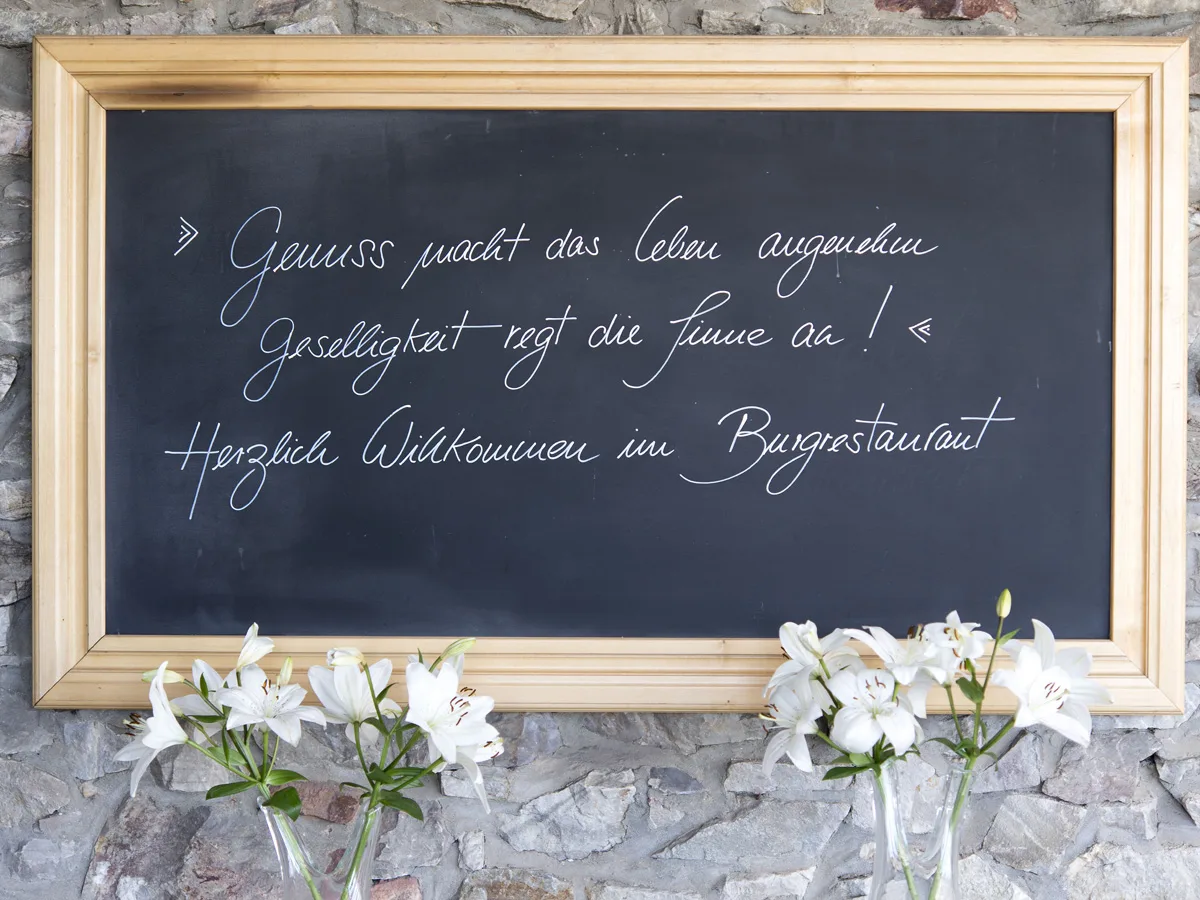 » Genuss macht das Leben angenehm
Geselligkeit regt die Sinne an! «
Herzlich Willkommen im Burgrestaurant